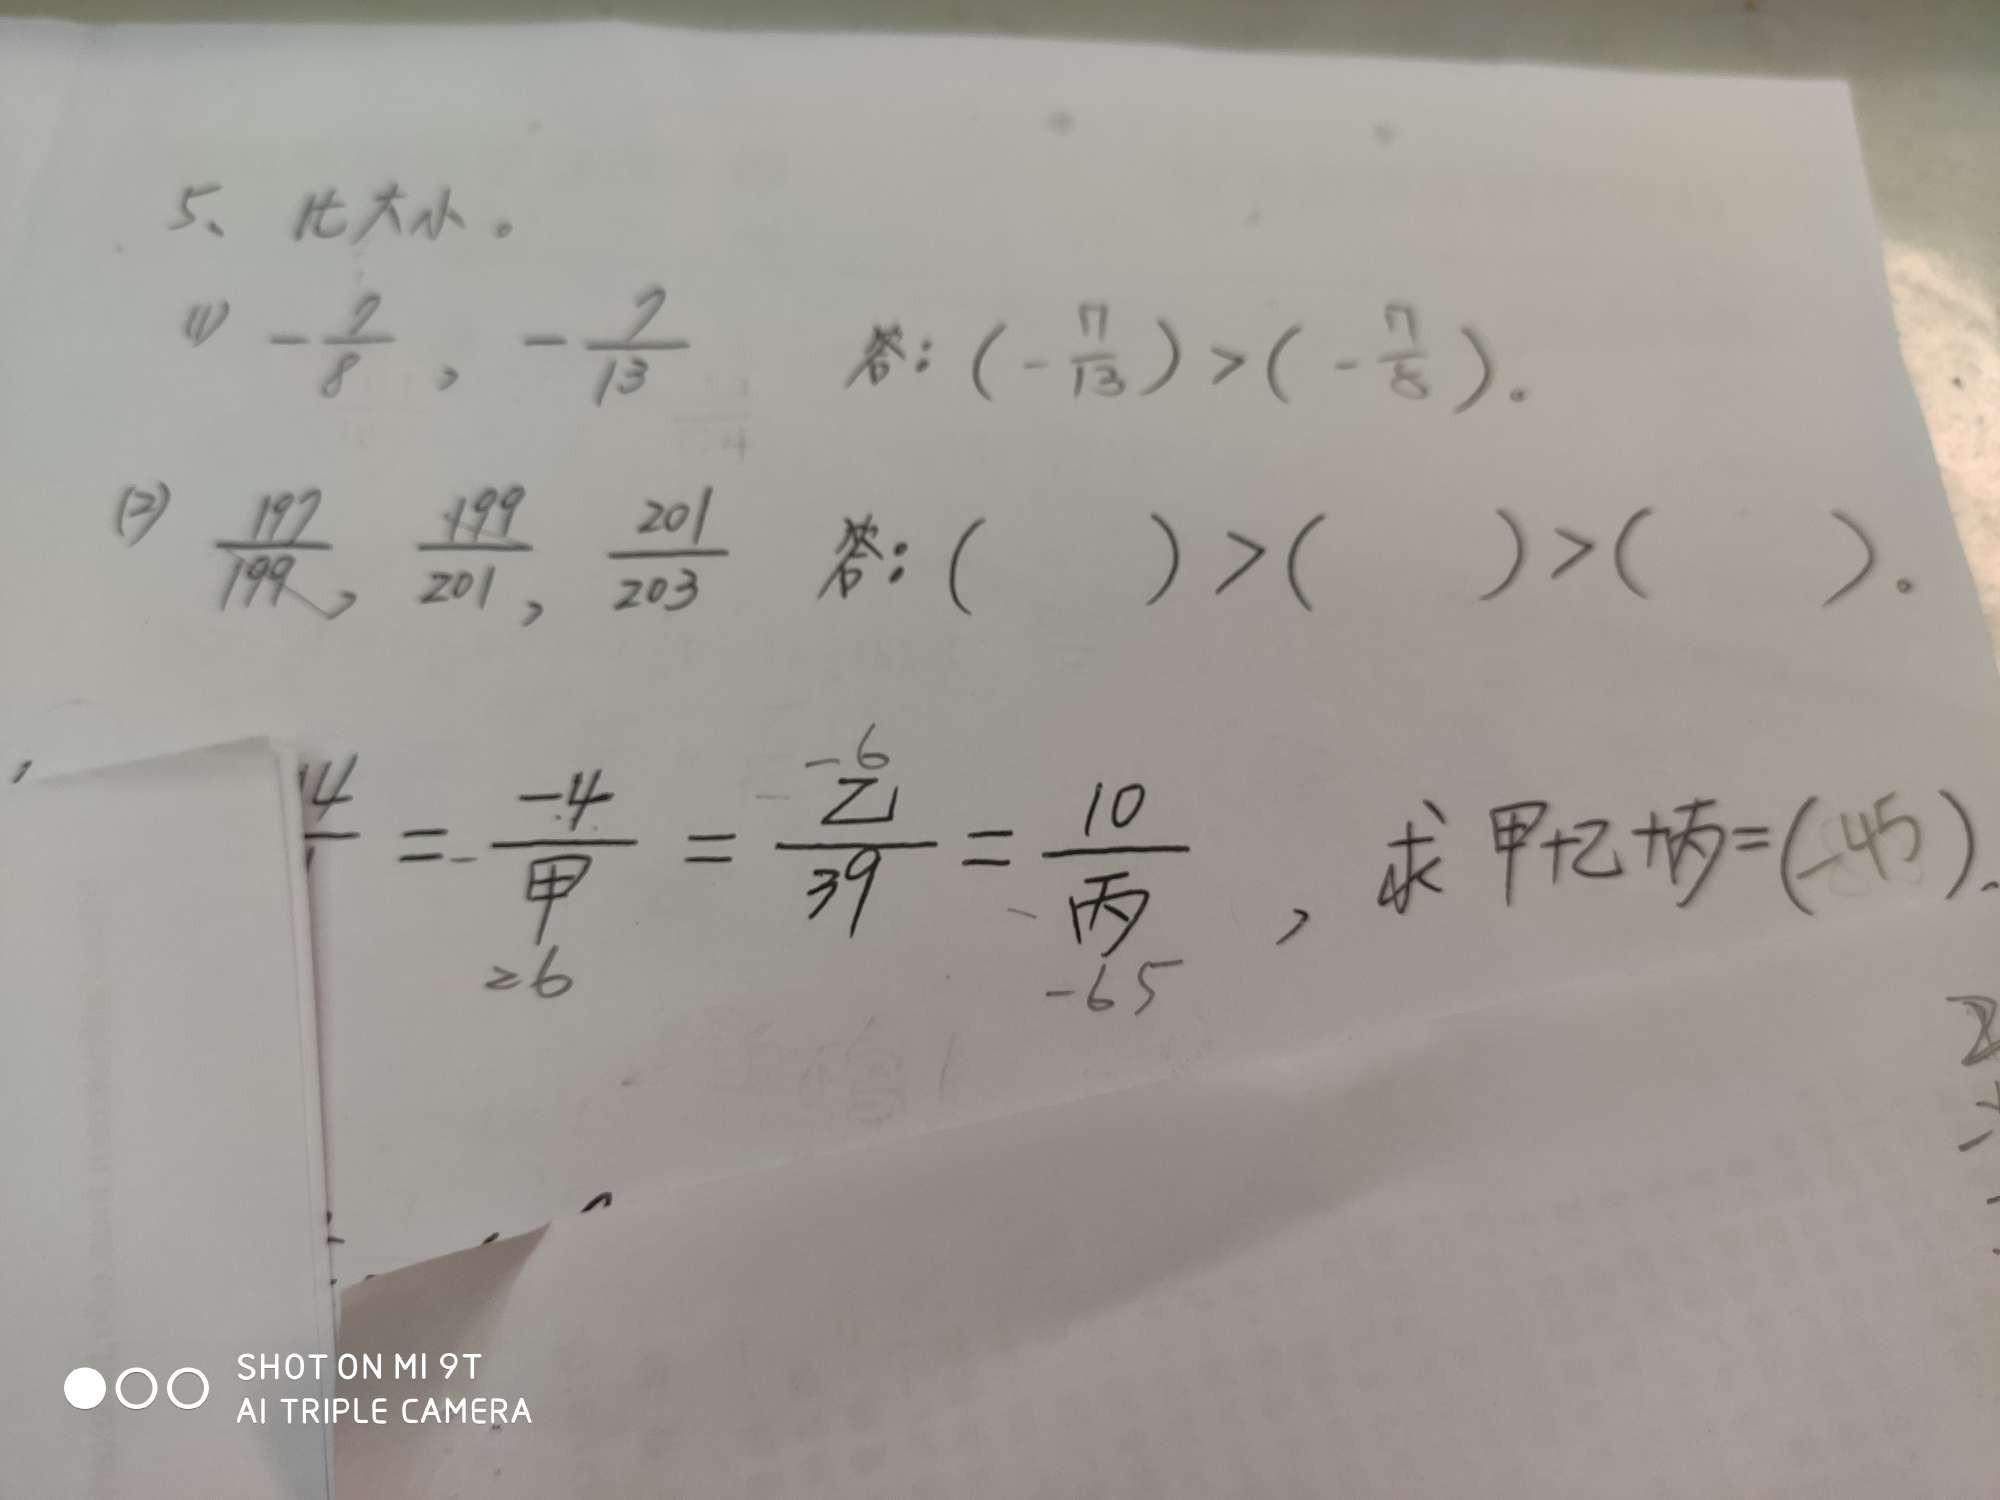 5、比大小。
(1) -7/8 , -7/13 答:(-7/13)>(-7/8).
(2) 197/199, 199/201, 201/203 答:( )>( )>( ).
-6
14 = -4/甲 = 乙/39 = 10/丙 , 求甲+乙+丙=(-45).
26 -65
SHOT ON MI 9T
AI TRIPLE CAMERA